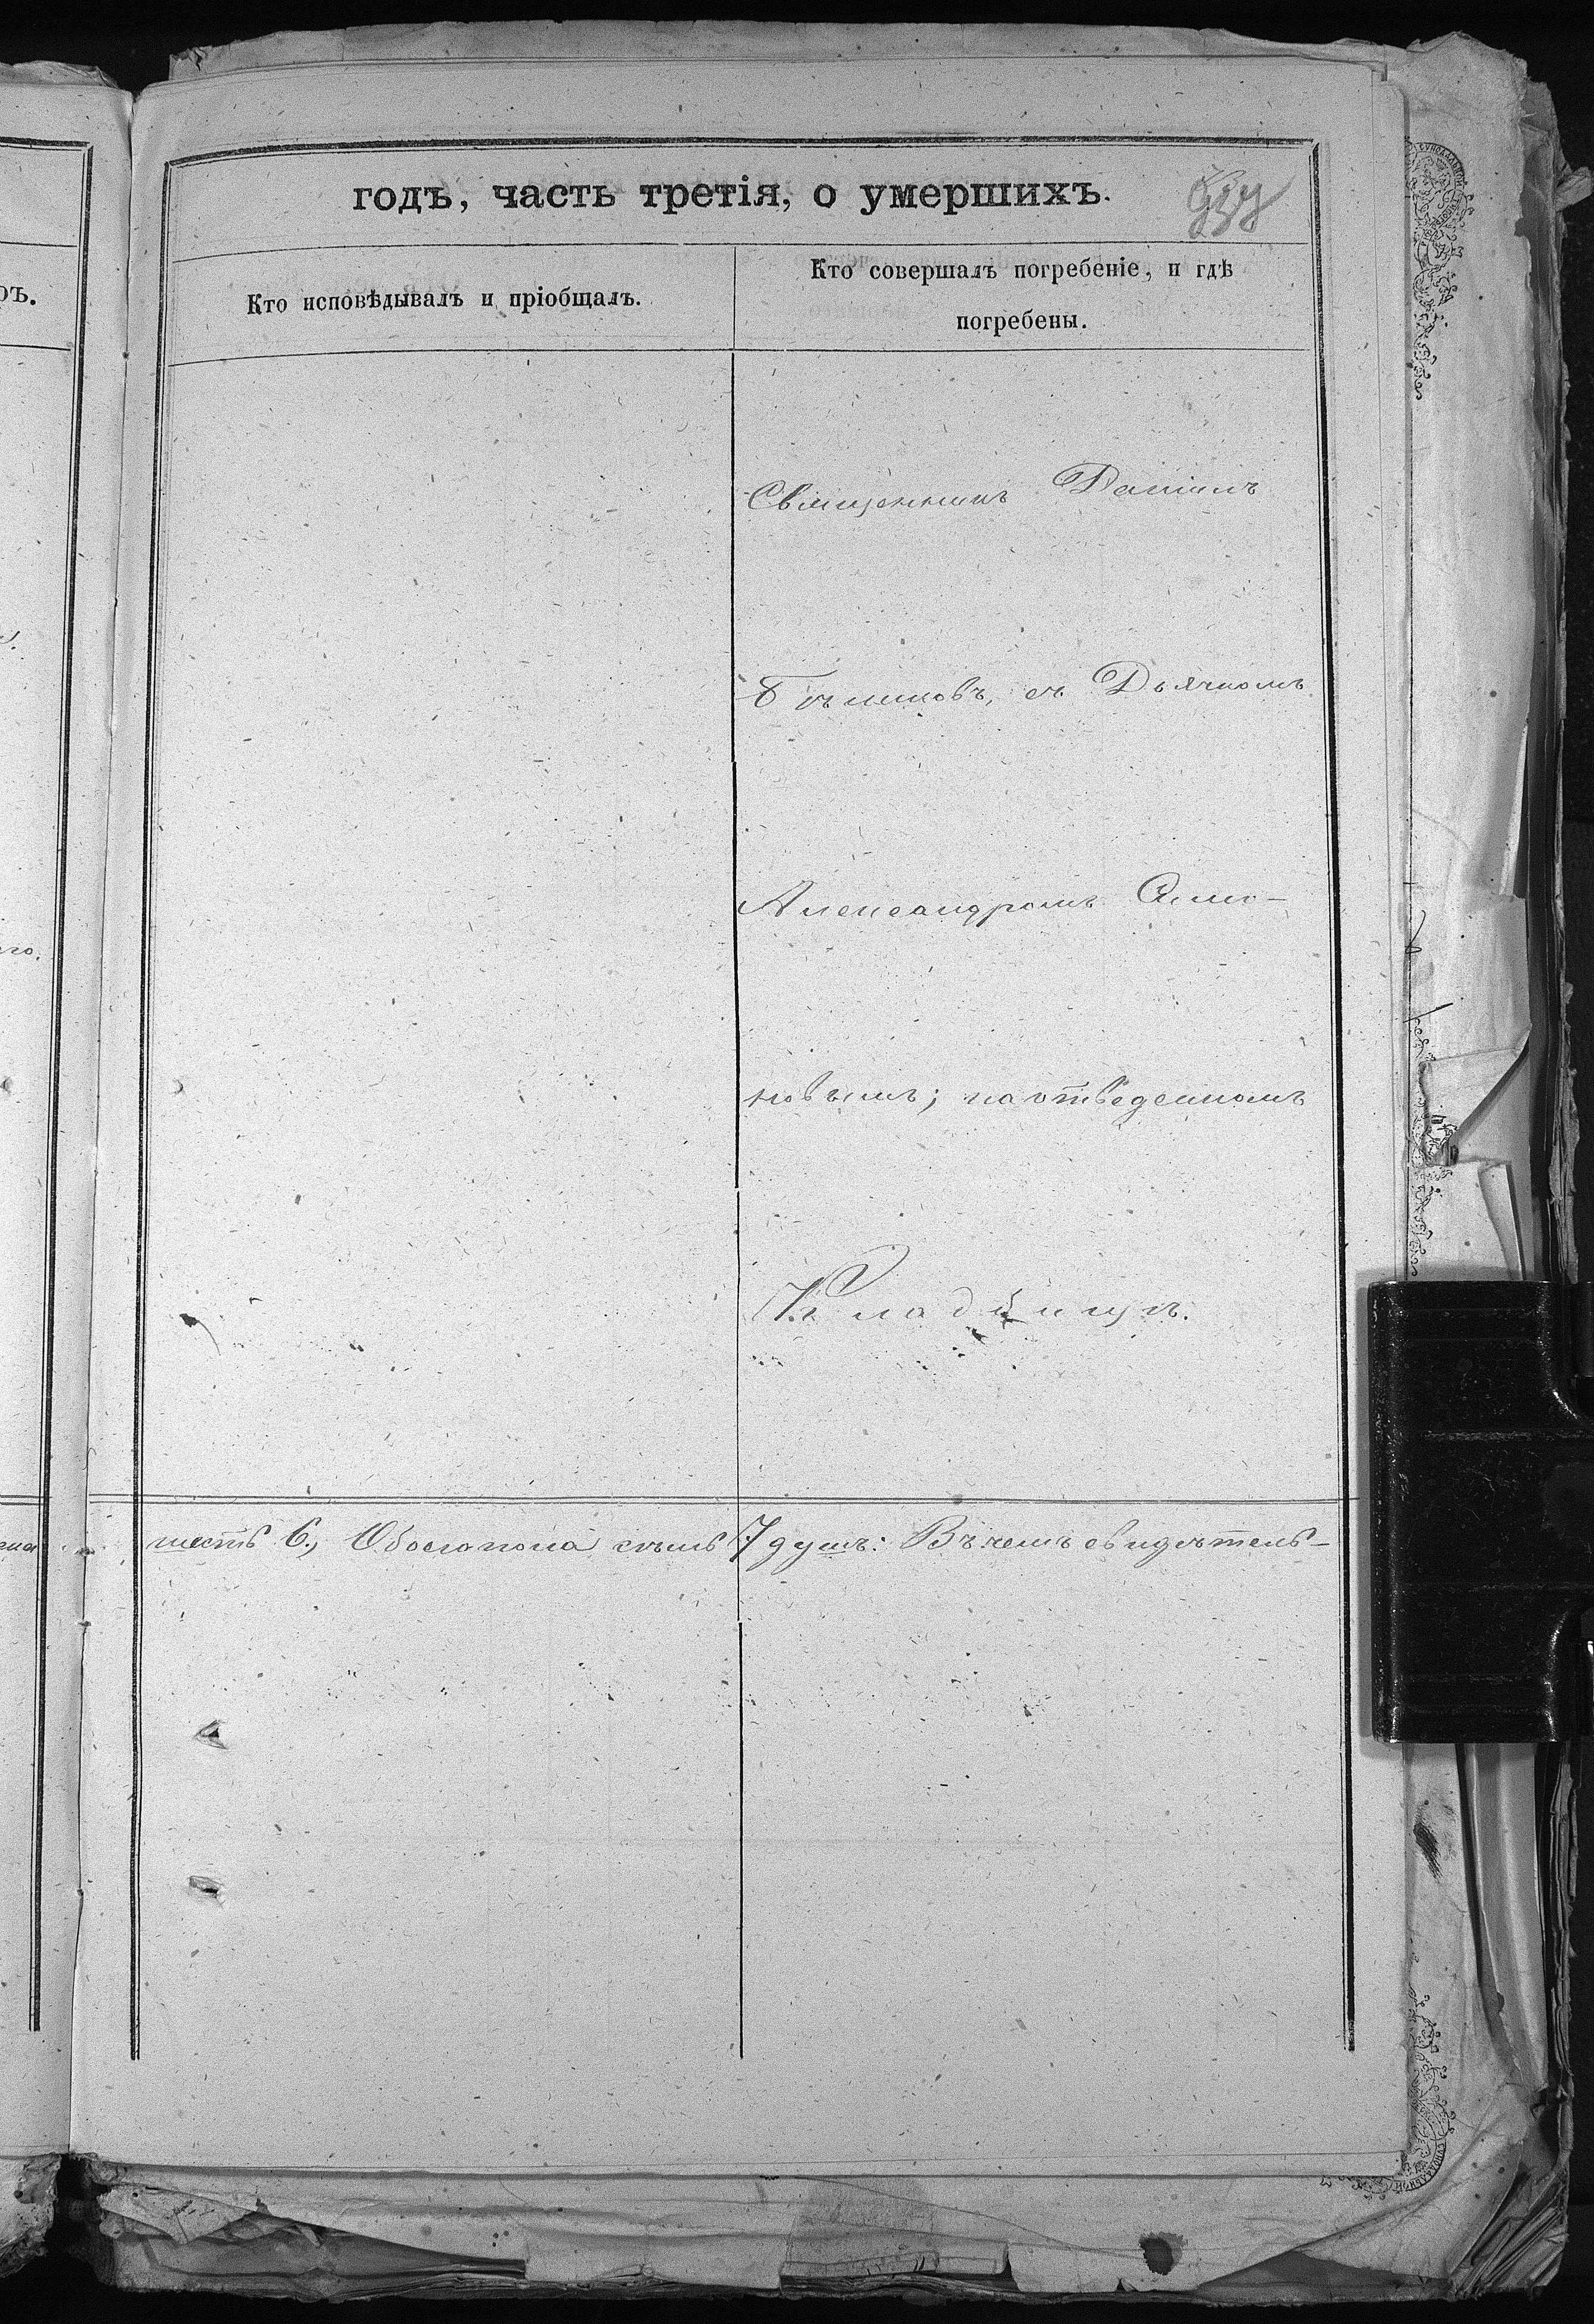 годъ, часть третія, о умершихъ.
Кто исповѣдывалъ и пріобщалъ.
Кто совершалъ погребеніе, и гдѣ
погребены.
ръ.
Священникъ Даніилъ
съ Дьячкомъ
Александромъ Симо-
новымъ; на отведенномъ
Кладбищѣ.
шесть 6., Обоего пола семь 7 душъ: Въ чемъ свидѣтель-